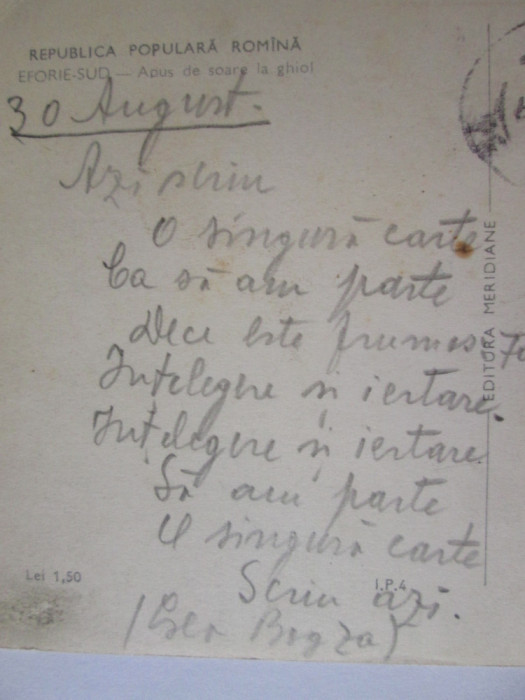 REPUBLICA POPULARĂ ROMÎNĂ
EFORIE-SUD — Apus de soare la ghiol
30 August.
Azi scriu
O singură carte
Ca să am parte
Dece este frumos
Înțelegere și iertare.
Înțelegere și iertare
Să am parte
O singură carte
Scriu azi.
(Geo Bogza)
Lei 1,50
I.P.4
EDITURA MERIDIANE